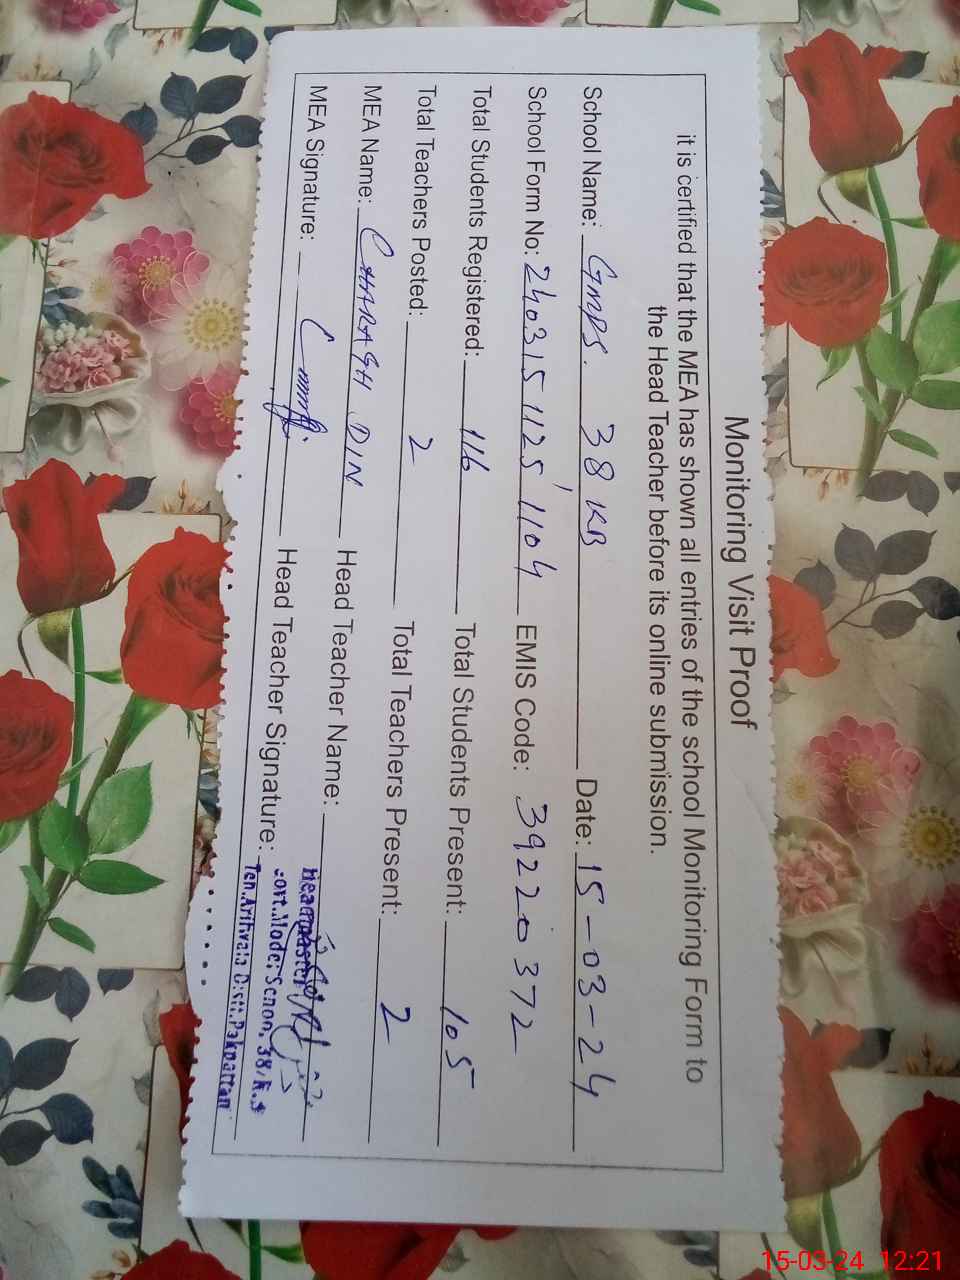 Monitoring Visit Proof
it is certified that the MEA has shown all entries of the school Monitoring Form to
the Head Teacher before its online submission.
School Name: GMPS. 38 KB Date: 15-03-24
School Form No: 240315 1125 1104 EMIS Code: 39220372
Total Students Registered: 116 Total Students Present: 105
Total Teachers Posted: 2 Total Teachers Present: 2
MEA Name: CHARAGH DIN Head Teacher Name:
MEA Signature: Head Teacher Signature:
Headmaster
Govt. Model School 38/K.B
Teh. Arifwala Distt. Pakpattan
15-03-24 12:21